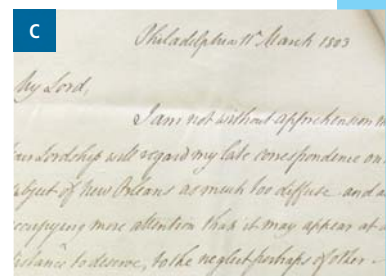 C
Philadelphia 11th March 1803
My Lord,
I am not without apprehension
Your Lordship will regard my late correspondence on
subject of New Orleans as much too diffuse and as
occupying more attention than it may appear at a
distance to deserve, to the neglect perhaps of other